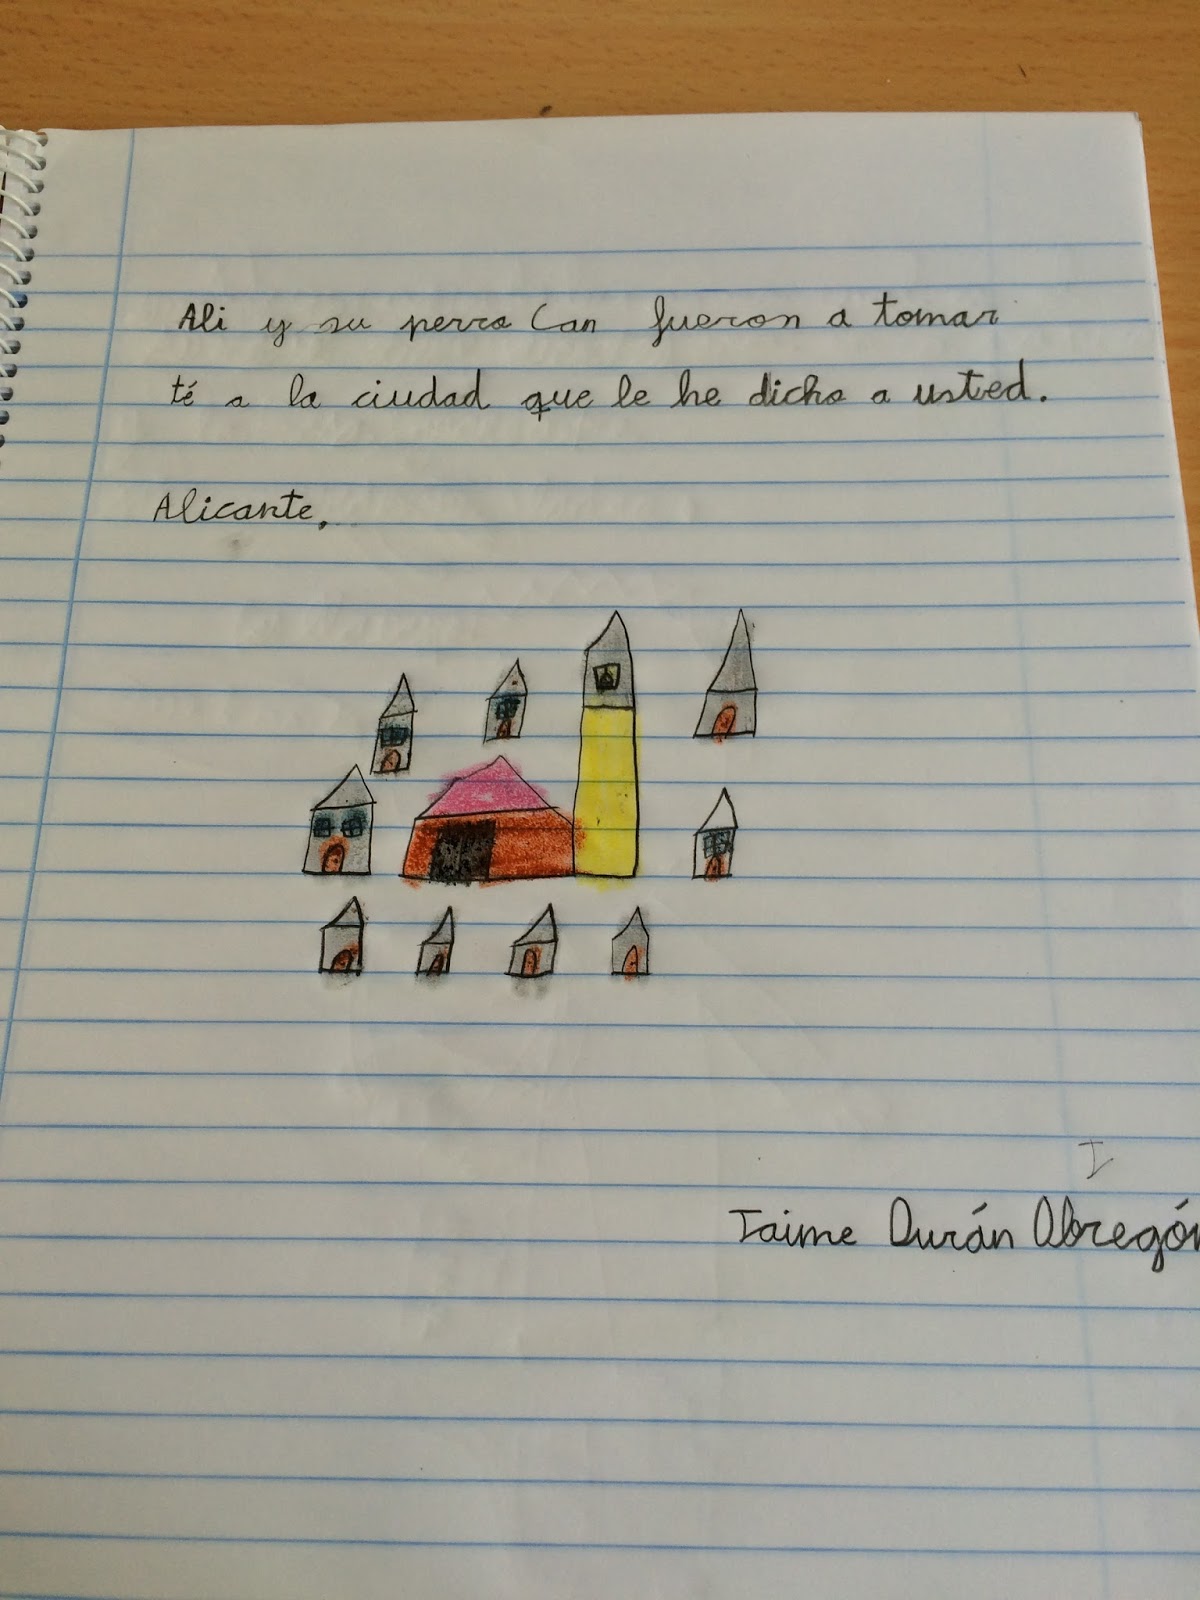 Ali y su perro Can fueron a tomar
té a la ciudad que le he dicho a usted.
Alicante.
I
Jaime Durán Obregón